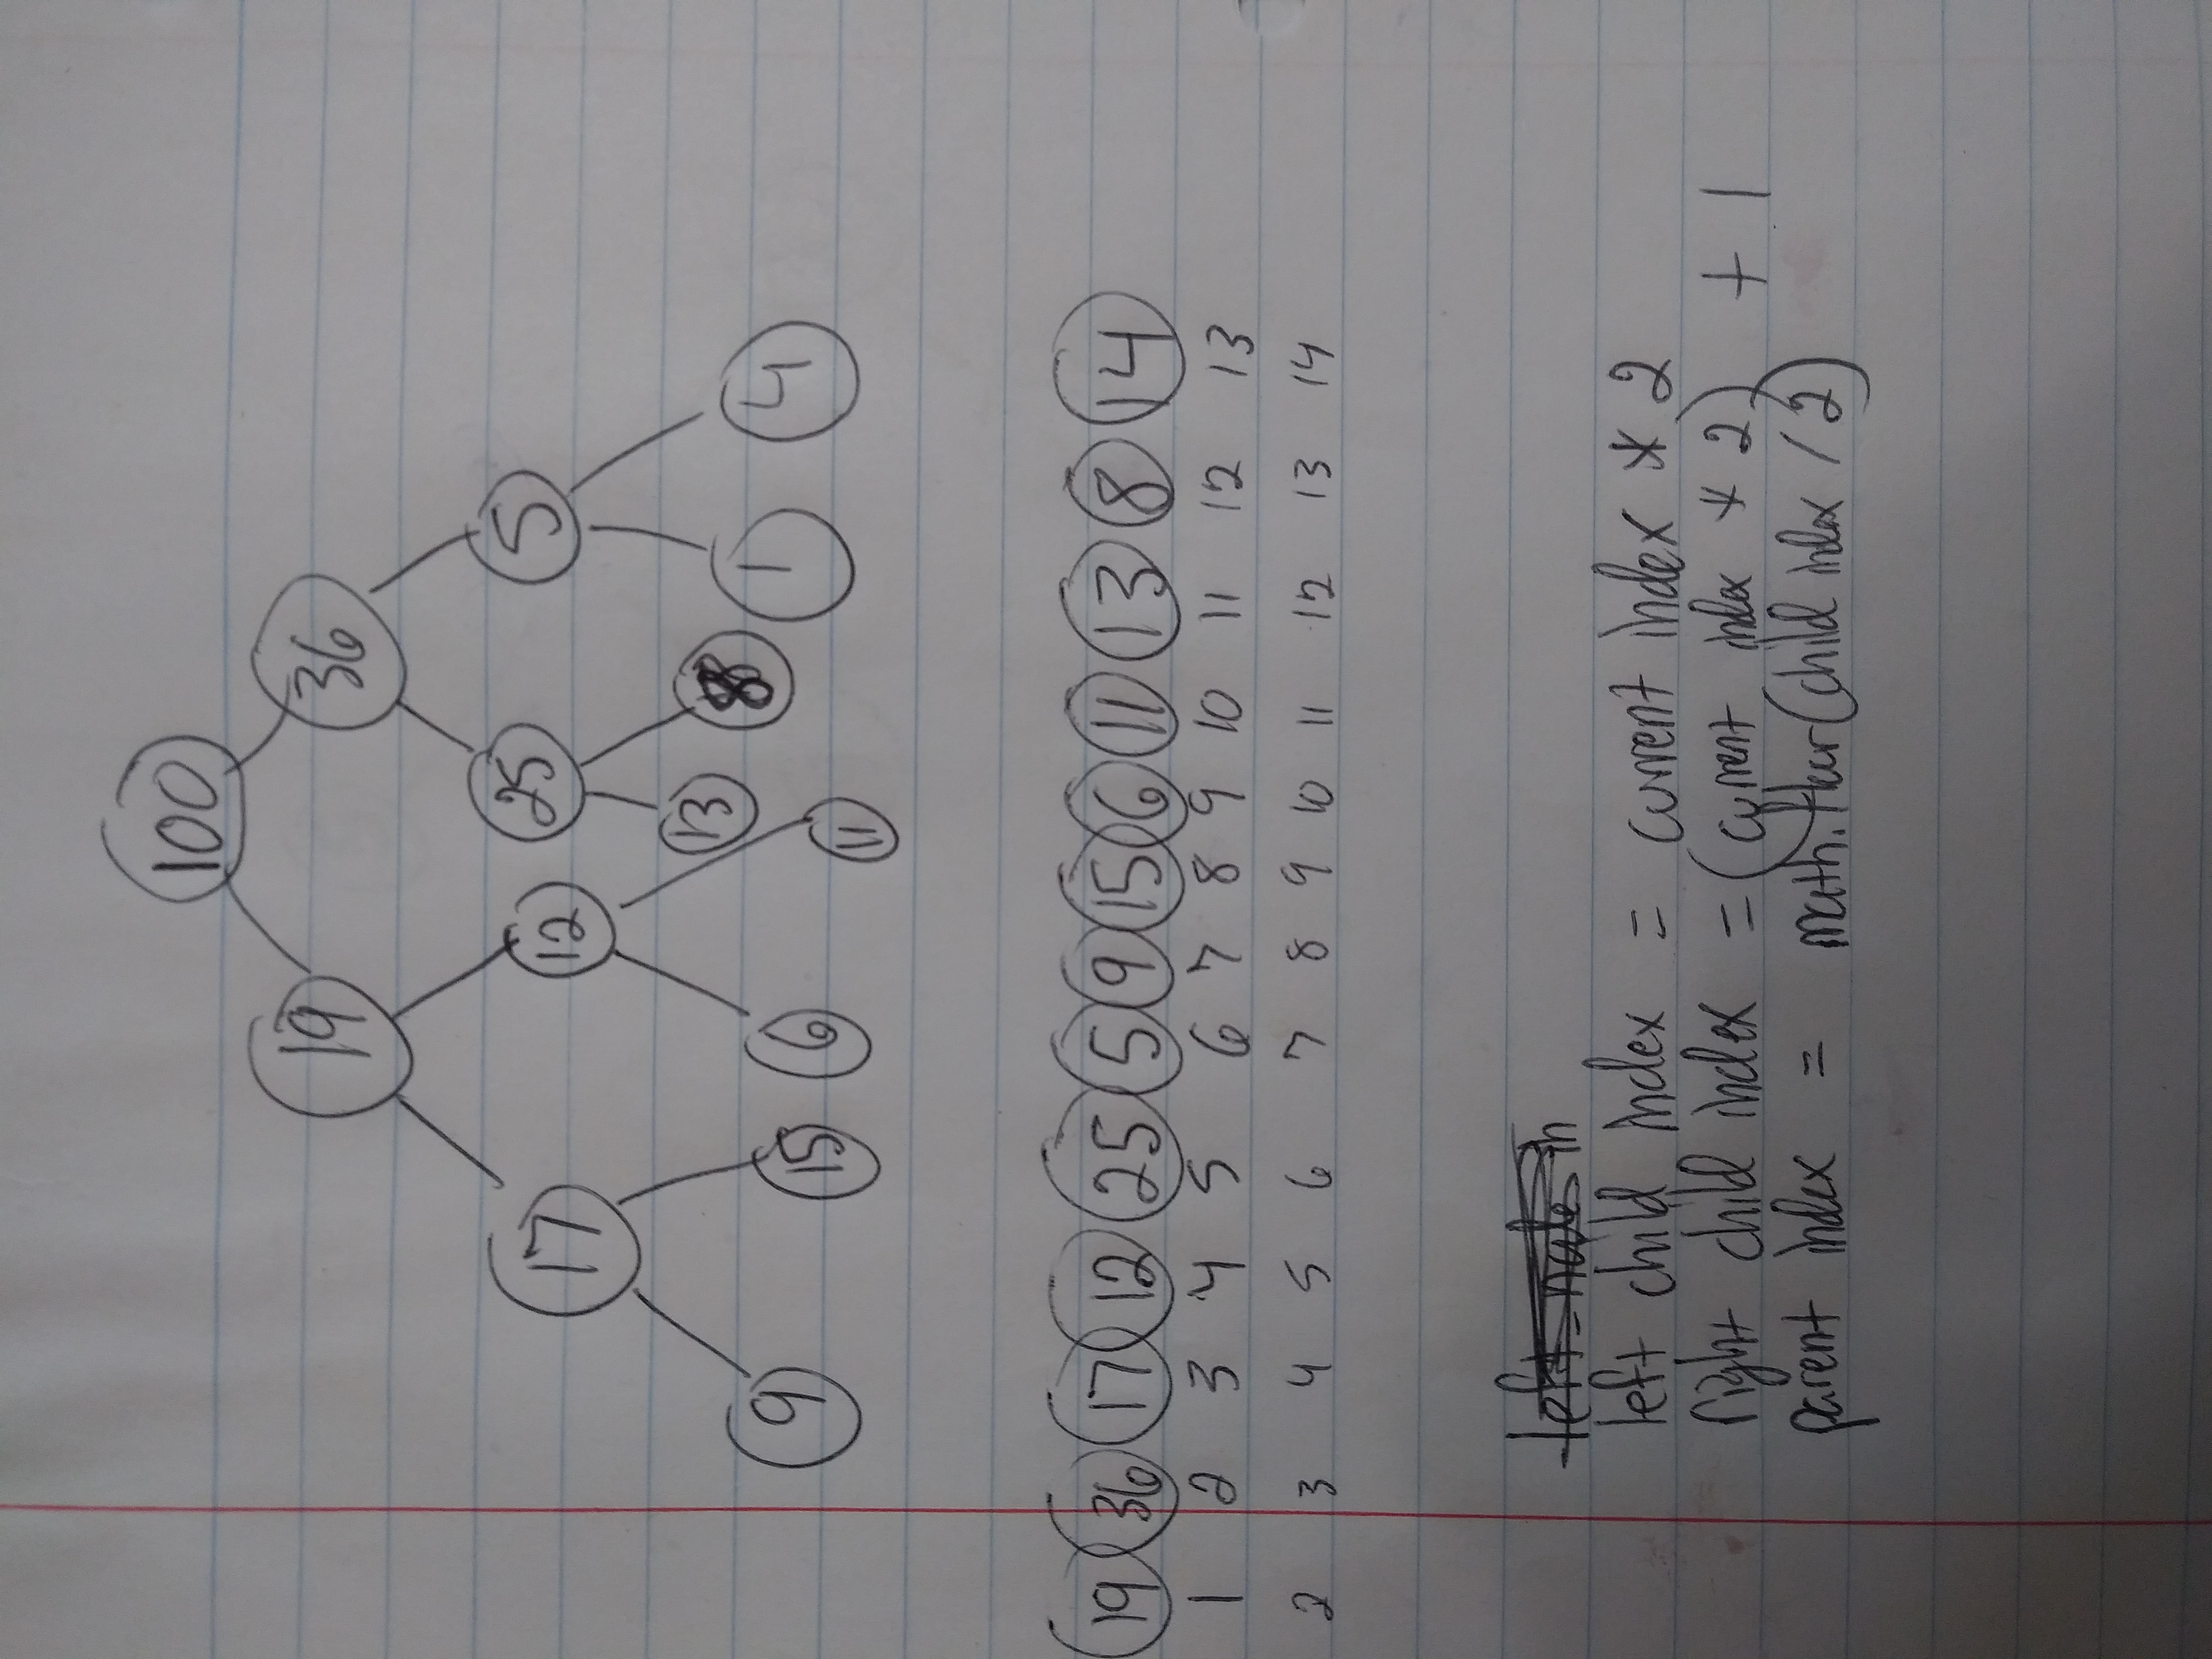 100
19 36
17 12 25 5
9 15 6 11 13 8 1 4
19 36 17 12 25 5 9 15 6 11 13 8 14
1 2 3 4 5 6 7 8 9 10 11 12 13
2 3 4 5 6 7 8 9 10 11 12 13 14
left
left child index = current index * 2
right child index = (current index * 2) + 1
parent index = math.floor(child index / 2)